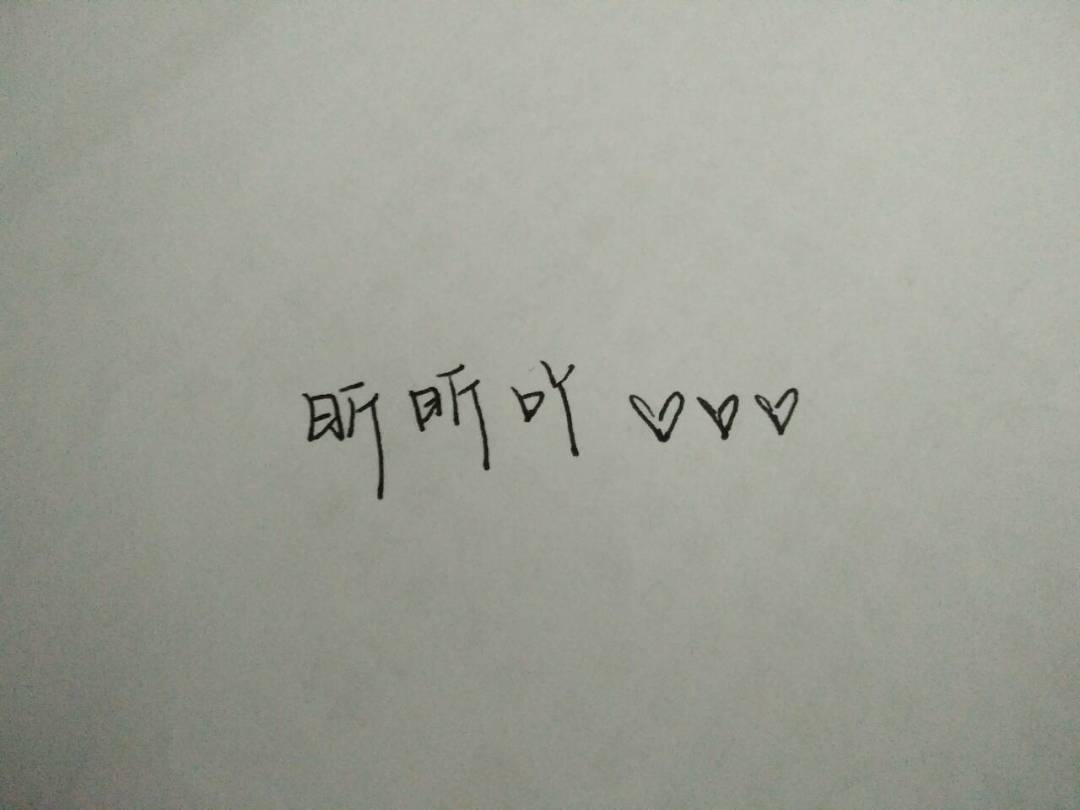 昕昕吖♡♡♡